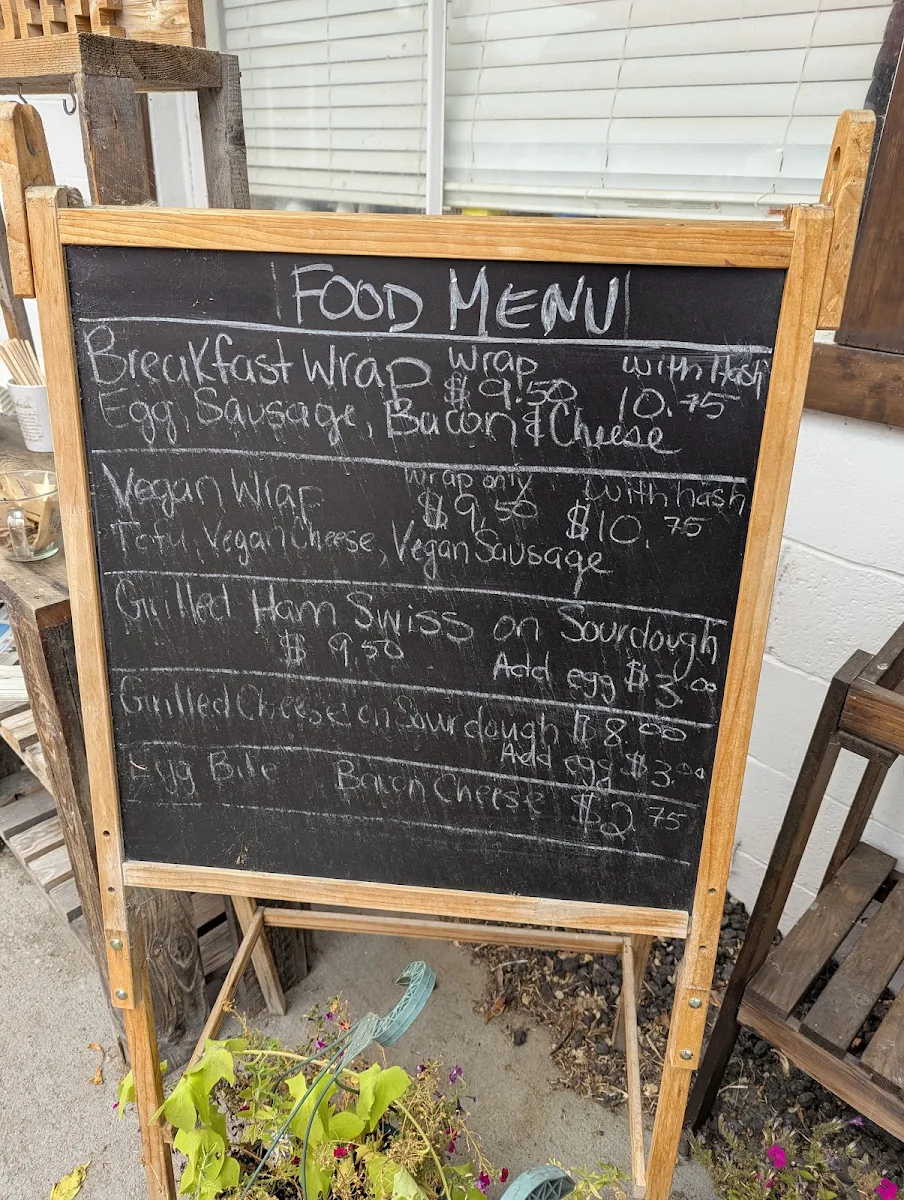 FOOD MENU
Breakfast Wrap Wrap $9.50 with Hash 10.75
Egg, Sausage, Bacon & Cheese
Vegan Wrap wrap only $9.50 with hash $10.75
Tofu, Vegan Cheese, Vegan Sausage
Grilled Ham Swiss on Sourdough
$9.50 Add egg $3.00
Grilled Cheese on Sourdough $8.00
Add egg $3.00
Egg Bite Bacon Cheese $2.75